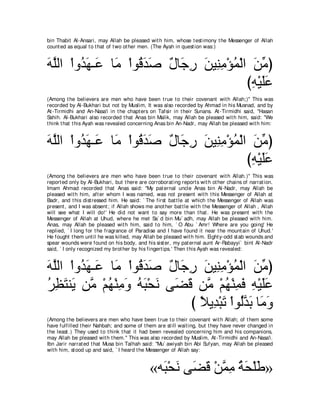 bin Thabit Al-Ansari, may Allah be pleased with him, whose testimony the Messenger of Allah
counted as equal to that of two other men. (The Ayah in question was:)
مِّنَ الْمُؤْمِنِينَ رِجَالٌ صَدَقُواْ مَا عَـهَدُواْ اللَّهَ)
(عَلَيْهِ
(Among the believers are men who have been true to their covenant with Allah;)" This was
recorded by Al-Bukhari but not by Muslim. It was also recorded by Ahmad in his Musnad, and by
At-Tirmidhi and An-Nasa'i in the chapters on Tafsir in their Sunans. At-Tirmidhi said, "Hasan
Sahih. Al-Bukhari also recorded that Anas bin Malik, may Allah be pleased with him, said: "We
think that this Ayah was revealed concerning Anas bin An-Nadr, may Allah be pleased with him:
مِّنَ الْمُؤْمِنِينَ رِجَالٌ صَدَقُواْ مَا عَـهَدُواْ اللَّهَ)
(عَلَيْهِ
(Among the believers are men who have been true to their covenant with Allah.)" This was
reported only by Al-Bukhari, but there are corroborating reports with other chains of narration.
Imam Ahmad recorded that Anas said: "My paternal uncle Anas bin Al-Nadr, may Allah be
pleased with him, after whom I was named, was not present with this Messenger of Allah at
Badr, and this distressed him. He said: `The first battle at which the Messenger of Allah was
present, and I was absent; if Allah shows me another battle with the Messenger of Allah , Allah
will see what I will do!' He did not want to say more than that. He was present with the
Messenger of Allah at Uhud, where he met Sa`d bin Mu`adh, may Allah be pleased with him.
Anas, may Allah be pleased with him, said to him, `O Abu `Amr! Where are you going' He
replied, `I long for the fragrance of Paradise and I have found it near the mountain of Uhud.'
He fought them until he was killed, may Allah be pleased with him. Eighty-odd stab wounds and
spear wounds were found on his body, and his sister, my paternal aunt Ar-Rabayyi` bint Al-Nadr
said, `I only recognized my brother by his fingertips.' Then this Ayah was revealed:
مِّنَ الْمُؤْمِنِينَ رِجَالٌ صَدَقُواْ مَا عَـهَدُواْ اللَّهَ)
عَلَيْهِ فَمِنْهُمْ مَّن قَضَى نَحْبَهُ وَمِنْهُمْ مَّن يَنتَظِرُ
(وَمَا بَدَّلُواْ تَبْدِيلاً
(Among the believers are men who have been true to their covenant with Allah; of them some
have fulfilled their Nahbah; and some of them are still waiting, but they have never changed in
the least.) They used to think that it had been revealed concerning him and his companions,
may Allah be pleased with them." This was also recorded by Muslim, At-Tirmidhi and An-Nasa'i.
Ibn Jarir narrated that Musa bin Talhah said: "Mu`awiyah bin Abi Sufyan, may Allah be pleased
with him, stood up and said, `I heard the Messenger of Allah say:
«طَلْحَةُ مِمَّنْ قَضَى نَحْبَه»